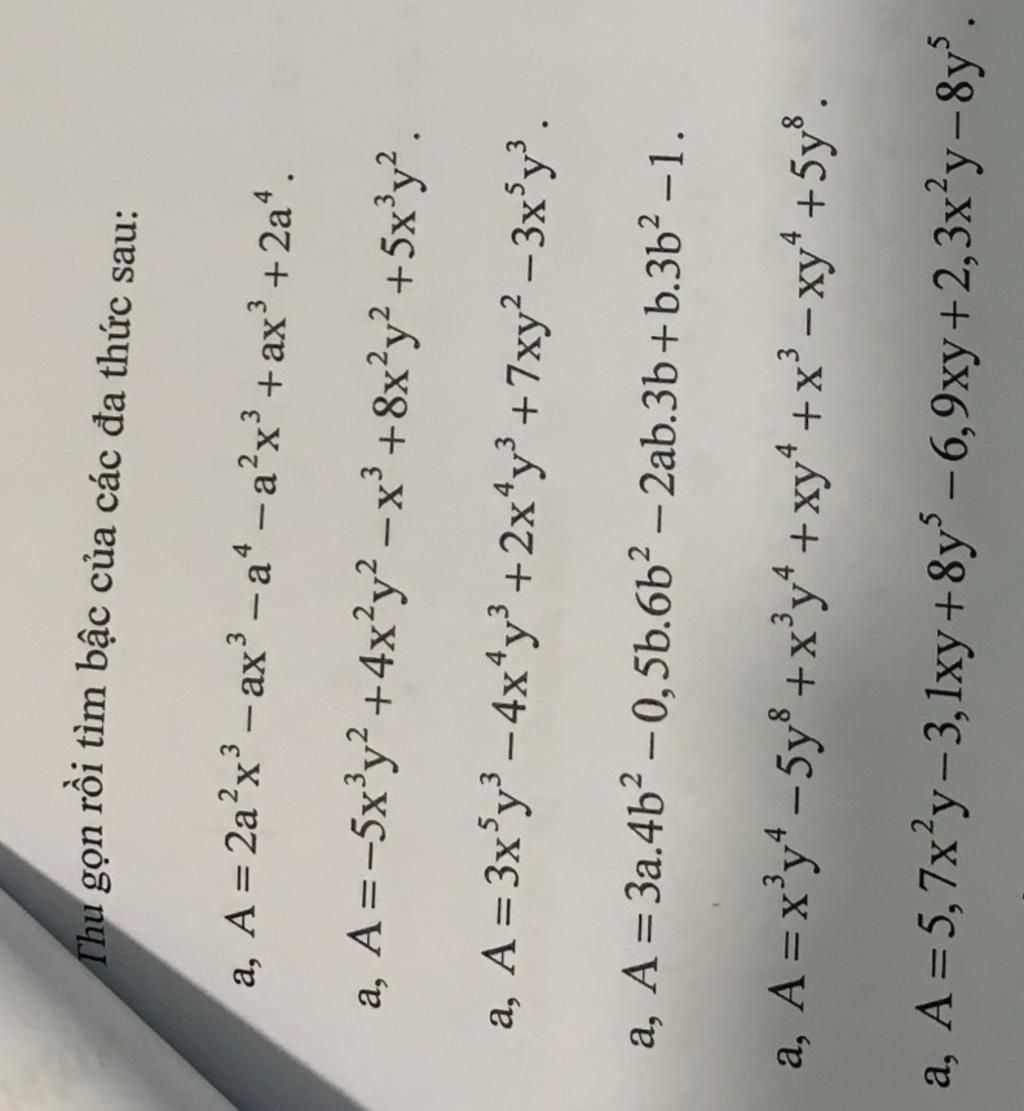 Thu gọn rồi tìm bậc của các đa thức sau:
a, A = 2a²x³ − ax³ − a⁴ − a²x³ + ax³ + 2a⁴.
a, A = −5x³y² + 4x²y² − x³ + 8x²y² + 5x³y².
a, A = 3x⁵y³ − 4x⁴y³ + 2x⁴y³ + 7xy² − 3x⁵y³.
a, A = 3a.4b² − 0,5b.6b² − 2ab.3b + b.3b² − 1.
a, A = x³y⁴ − 5y⁸ + x³y⁴ + xy⁴ + x³ − xy⁴ + 5y⁸.
a, A = 5,7x²y − 3,1xy + 8y⁵ − 6,9xy + 2,3x²y − 8y⁵.